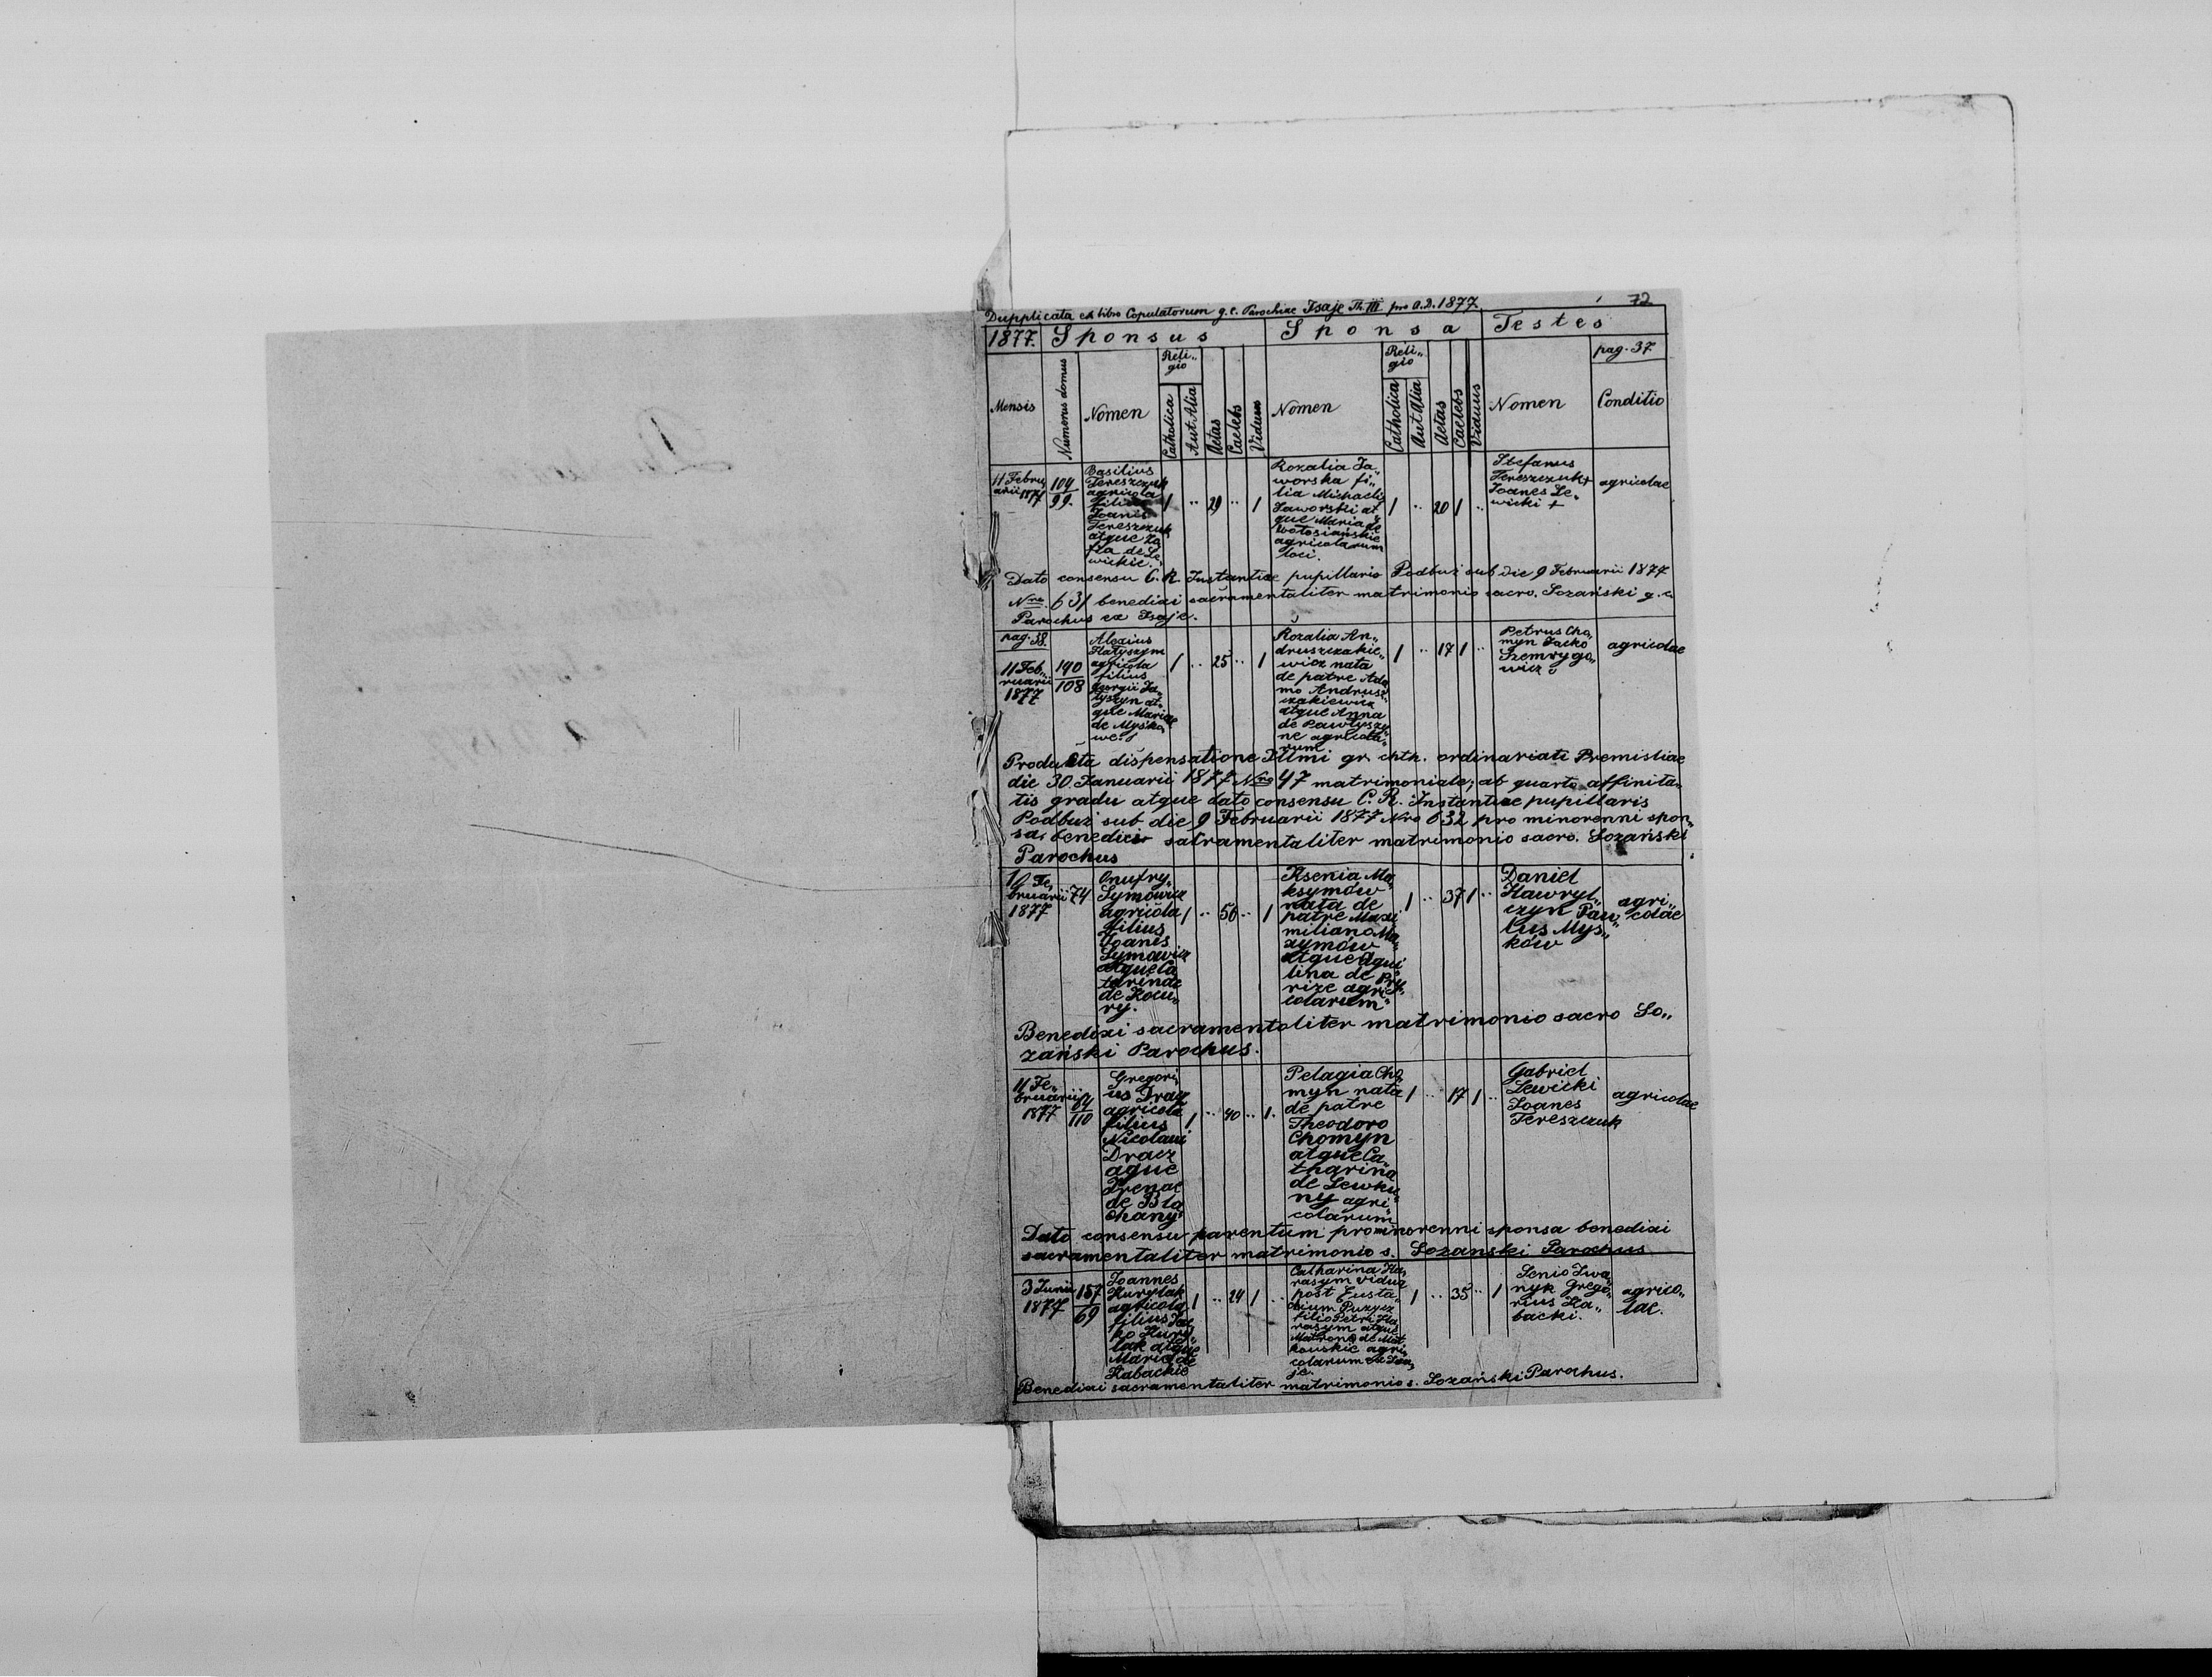 72
Dupplicata ex libro Copulatorum g. c. Parochiae Isaje Th. III pro A. D. 1877.
1877. Sponsus Sponsa Testes
pag. 37.
Mensis Numerus domus Nomen Religio Catholica Aut Alia Aetas Caelebs Viduus Nomen Religio Catholica Aut Alia Aetas Caelebs Viduus Nomen Conditio
11 Febru„
arii 1877
104
99.
Basilius
Tereszczuk
agricola
filius
Joanis
Tereszczuk
atque Zo
fia de Le
wickie.
1 .. 29 .. 1
Rozalia Ja„
worska fi„
lia Michaelis
Jaworski at
que Maria de
Wołosiańskie
agricolarum
loci.
1 .. 20 1 ..
Stefanus
Tereszczuk+
Joanes Le„
wicki +
agricolae
Dato consensu C. R. Instantiae pupillaris Podbuż sub die 9 Februarii 1877
Nro. 631 benedixi sacramentaliter matrimonio sacro. Łozański g. c.
Parochus ex Isaje.
pag. 38.
11 Feb„
ruarii
1877
190
108
Alexius
Hatyszyn
agricola
filius
Georgii Ja„
tyszyn at„
que Mariae
de Myśko„
we.
1 .. 25 .. 1
Rozalia An„
druszczakie„
wicz nata
de patre Ada
mo Andrusz
czakiewicz
atque Anna
de Pawłyszy
ne agricola„
rum
1 .. 17 1 ..
Petrus Cho„
myn Jacko
Szemrygo„
wicz
agricolae
Produkta dispensatione Illmi gr. cht. ordinariati Premisliae
die 30 Januarii 1877 Nro 47 matrimoniale; ab quarto affinita„
tis gradu atque dato consensu C. R. Instantiae pupillaris
Podbuż sub die 9 Februarii 1877 Nro 632 pro minorenni spon„
sa, benedici sacramentaliter matrimonio sacro. Łozański
Parochus
10 Fe„
bruarii
1877
74
Onufry„
Symowicz
agricola
filius
Joanis
Symowicz
atque Ca
tarinae
de Kocu„
ry.
1 .. 56 .. 1
Ksenia Ma
ksymów
nata de
patre Maxi
miliano Ma„
xymów
atque Aqui
lina de Pry„
rize agri„
colarum
1 .. 37 1 ..
Daniel
Hawryl„
czyk Pau„
lus Mys„
ków
agri„
colae
Benedixi sacramentaliter matrimonio sacro Ło„
zański Parochus.
11 Fe„
bruarii
1877
64
110
Gregori„
us Dracz
agricola
filius
Nicolaui
Dracz
aque
Irenae
de Bła
chany
1 .. 40 .. 1.
Pelagia Cho„
myn nata
de patre
Theodoro
Chomyn
atque Ca„
tharina
de Lewku„
ny agri
colarum
1 .. 17 1 ..
Gabriel
Lewicki
Joanes
Tereszczuk
agricolae
Dato consensu parentum pro minorenni sponsa benedixi
sacramentaliter matrimonio s. Łozański Parochus
3 Junii
1877
157
69
Joannes
Kurylak
agricola
filius Jac
ko Kury„
lak atque
Maria de
Habackie
1 .. 24 1 ..
Catharina Ha„
rasym vidua
post Eusta„
chium Puzycz
filio Petri Ha„
rasym atque
Matrona de Mat
kowskie agri„
colarum ex Isa„
je.
1 .. 35 .. 1
Senio Iwa„
nyk Grego„
rius Ha„
backi.
agrico„
lae.
Benedixi sacramentaliter matrimonio s. Łozański Parochus.